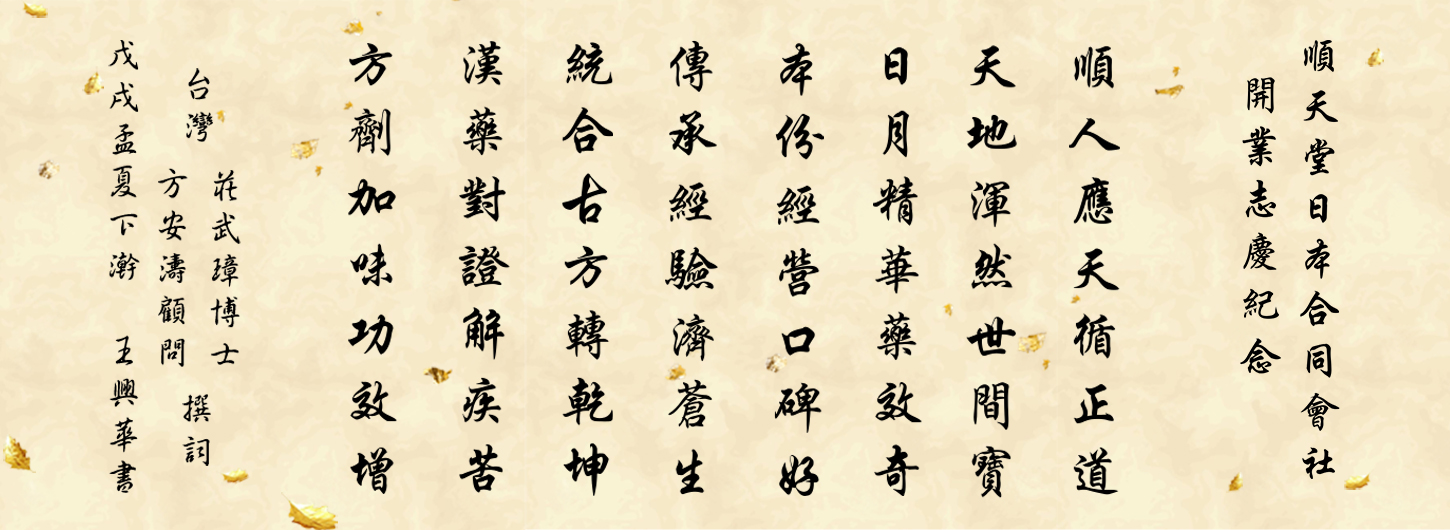 順天堂日本合同會社
開業志慶紀念
順人應天循正道
天地渾然世間寶
日月精華藥效奇
本份經營口碑好
傳承經驗濟蒼生
統合古方轉乾坤
漢藥對證解疾苦
方劑加味功效增
台灣
莊武璋博士
方安濤顧問
撰詞
戊戌孟夏下澣 王興華書